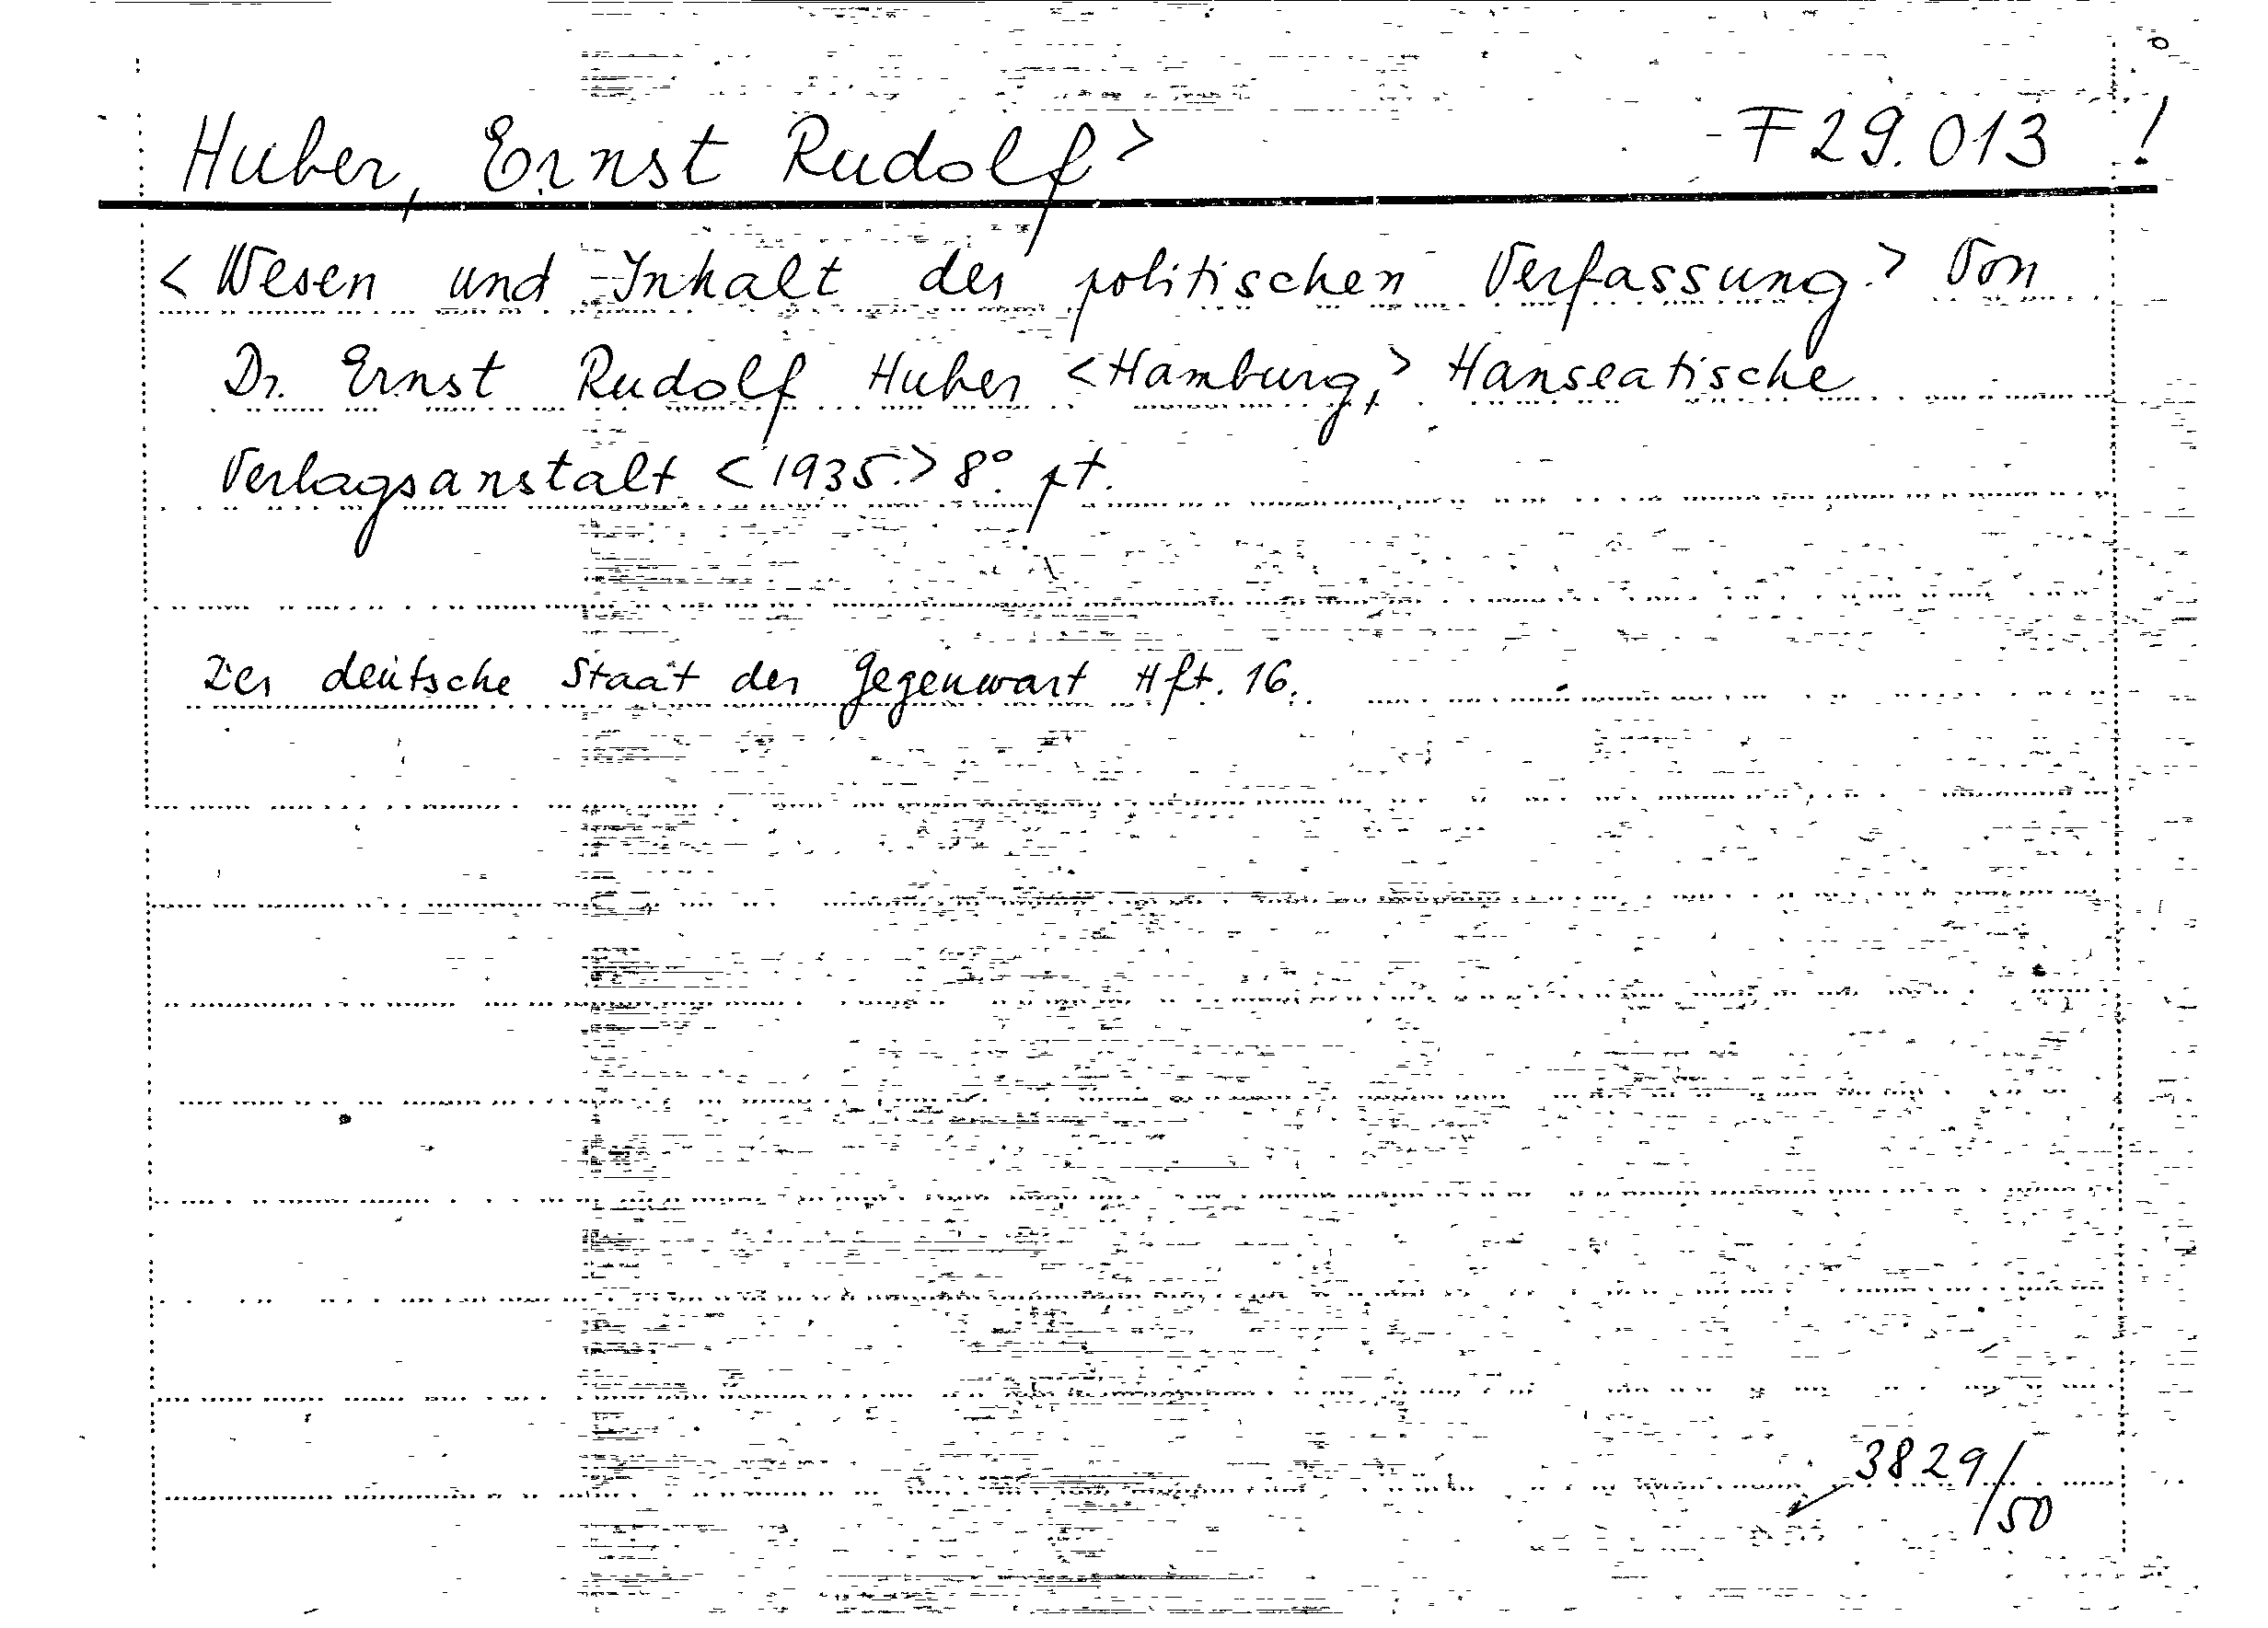 Huber, Ernst Rudolf> F 29.013 !
<Wesen und Inhalt der politischen Verfassung.> Von
Dr. Ernst Rudolf Huber <Hamburg,> Hanseatische
Verlagsanstalt <1935.> 8°. pt.
Der deutsche Staat der Gegenwart Hft. 16.
3829/50